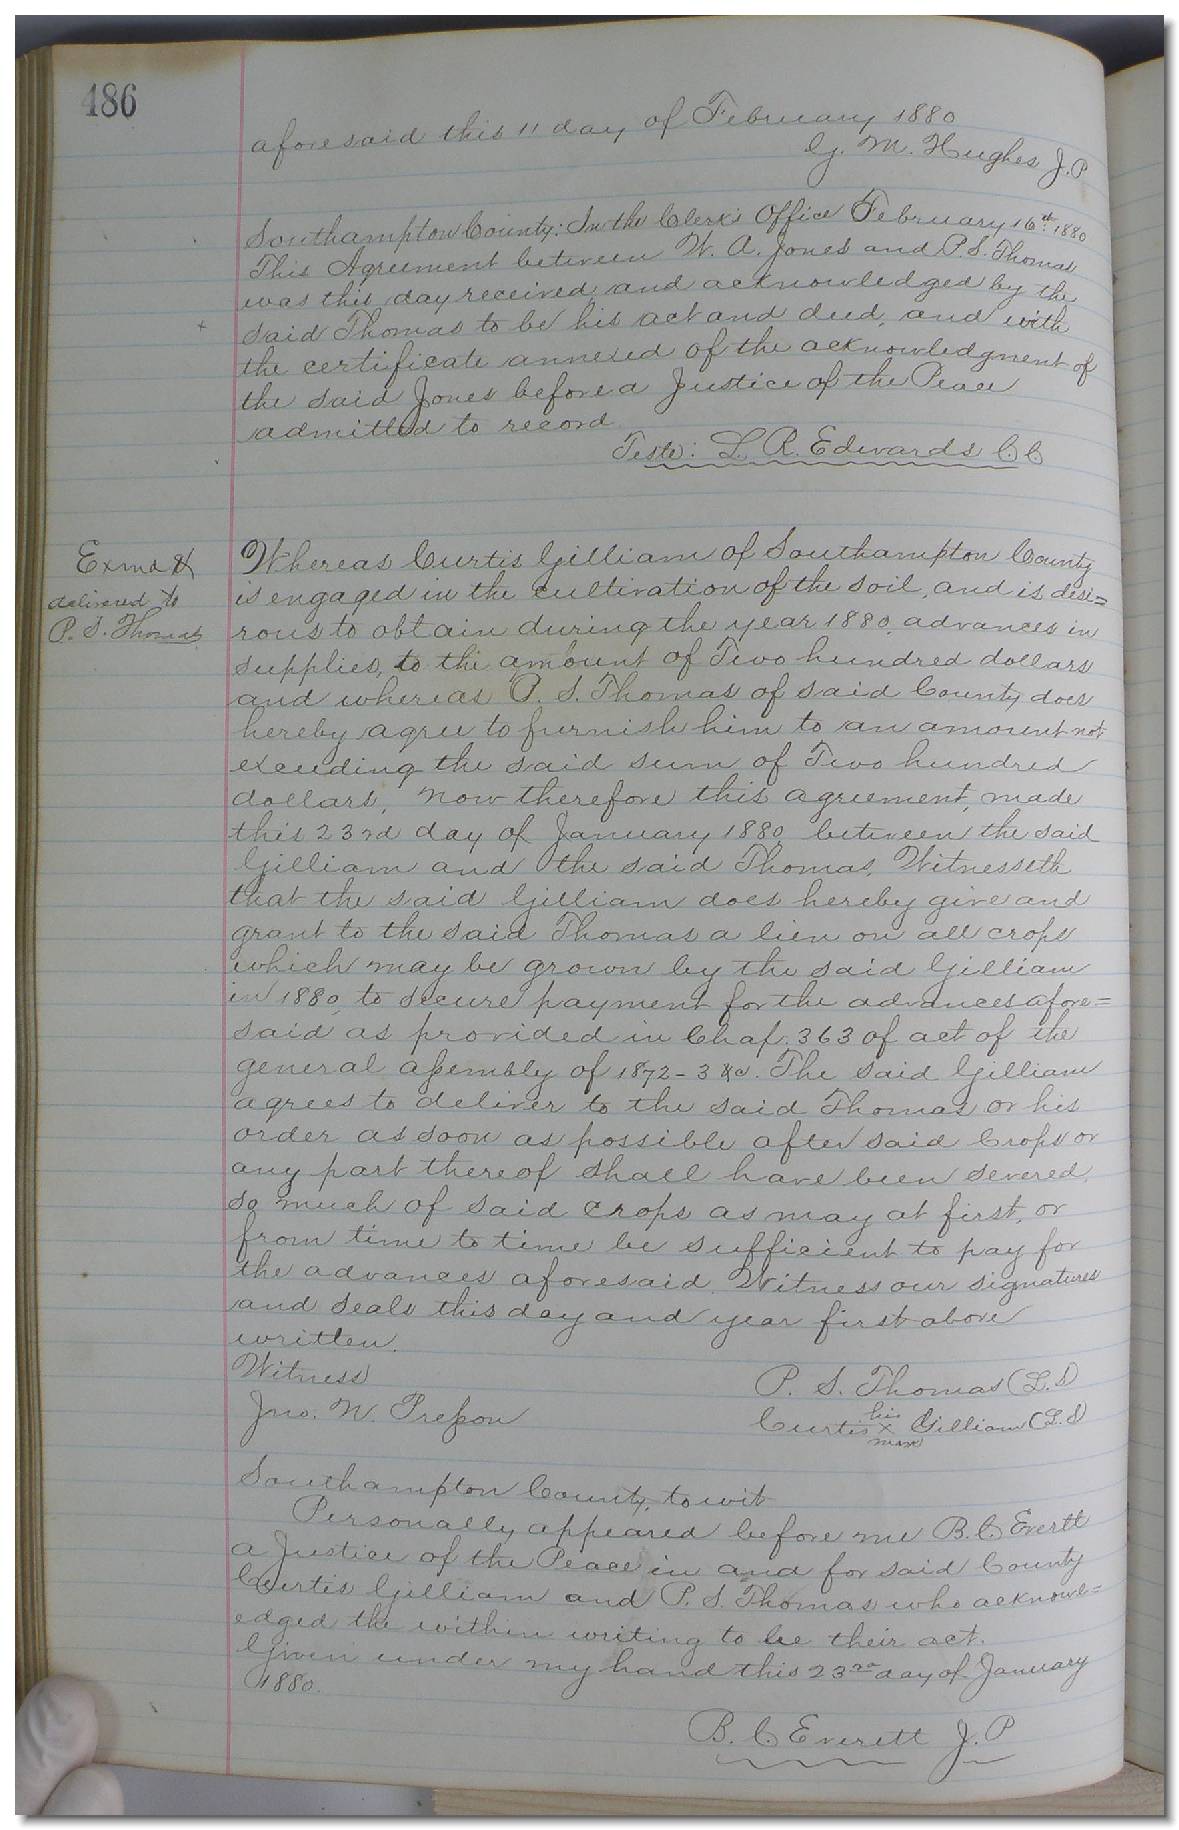 486
aforesaid this 11 day of February 1880
G. M. Hughes J.P
Southampton County: In the Clerk's Office February 16th 1880
This Agreement between W. A. Jones and P. S. Thomas
was this day received and acknowledged by the
said Thomas to be his act and deed, and with
the certificate annexed of the acknowledgment of
the said Jones before a Justice of the Peace
admitted to record.
Teste: L. R. Edwards C.C
Exmd &
delivered to
P. S. Thomas
Whereas Curtis Gilliam of Southampton County
is engaged in the cultivation of the soil, and is desi=
rous to obtain during the year 1880, advances in
supplies, to the amount of Two hundred dollars
and whereas P. S. Thomas of said County does
hereby agree to furnish him to an amount not
exceeding the said sum of Two hundred
dollars, Now therefore this agreement, made
this 23rd day of January 1880 between the said
Gilliam and the said Thomas, Witnesseth
that the said Gilliam does hereby give and
grant to the said Thomas a lien on all crops
which may be grown by the said Gilliam
in 1880, to secure payment for the advances afore=
said as provided in Chap. 363 of act of the
general assembly of 1872-3 &c. The said Gilliam
agrees to deliver to the said Thomas or his
order as soon as possible after said Crops or
any part thereof shall have been severed,
so much of said crops as may at first, or
from time to time be sufficient to pay for
the advances aforesaid. Witness our signatures
and seals this day and year first above
written.
Witness
P. S. Thomas (L.S)
Jno. W. Presson
his
Curtis x Gilliam (L.S)
mark
Southampton County, to wit
Personally appeared before me B. C. Everett
a Justice of the Peace in and for said County
Curtis Gilliam and P. S. Thomas who acknowl=
edged the within writing to be their act.
Given under my hand this 23rd day of January
1880.
B. C. Everett J.P